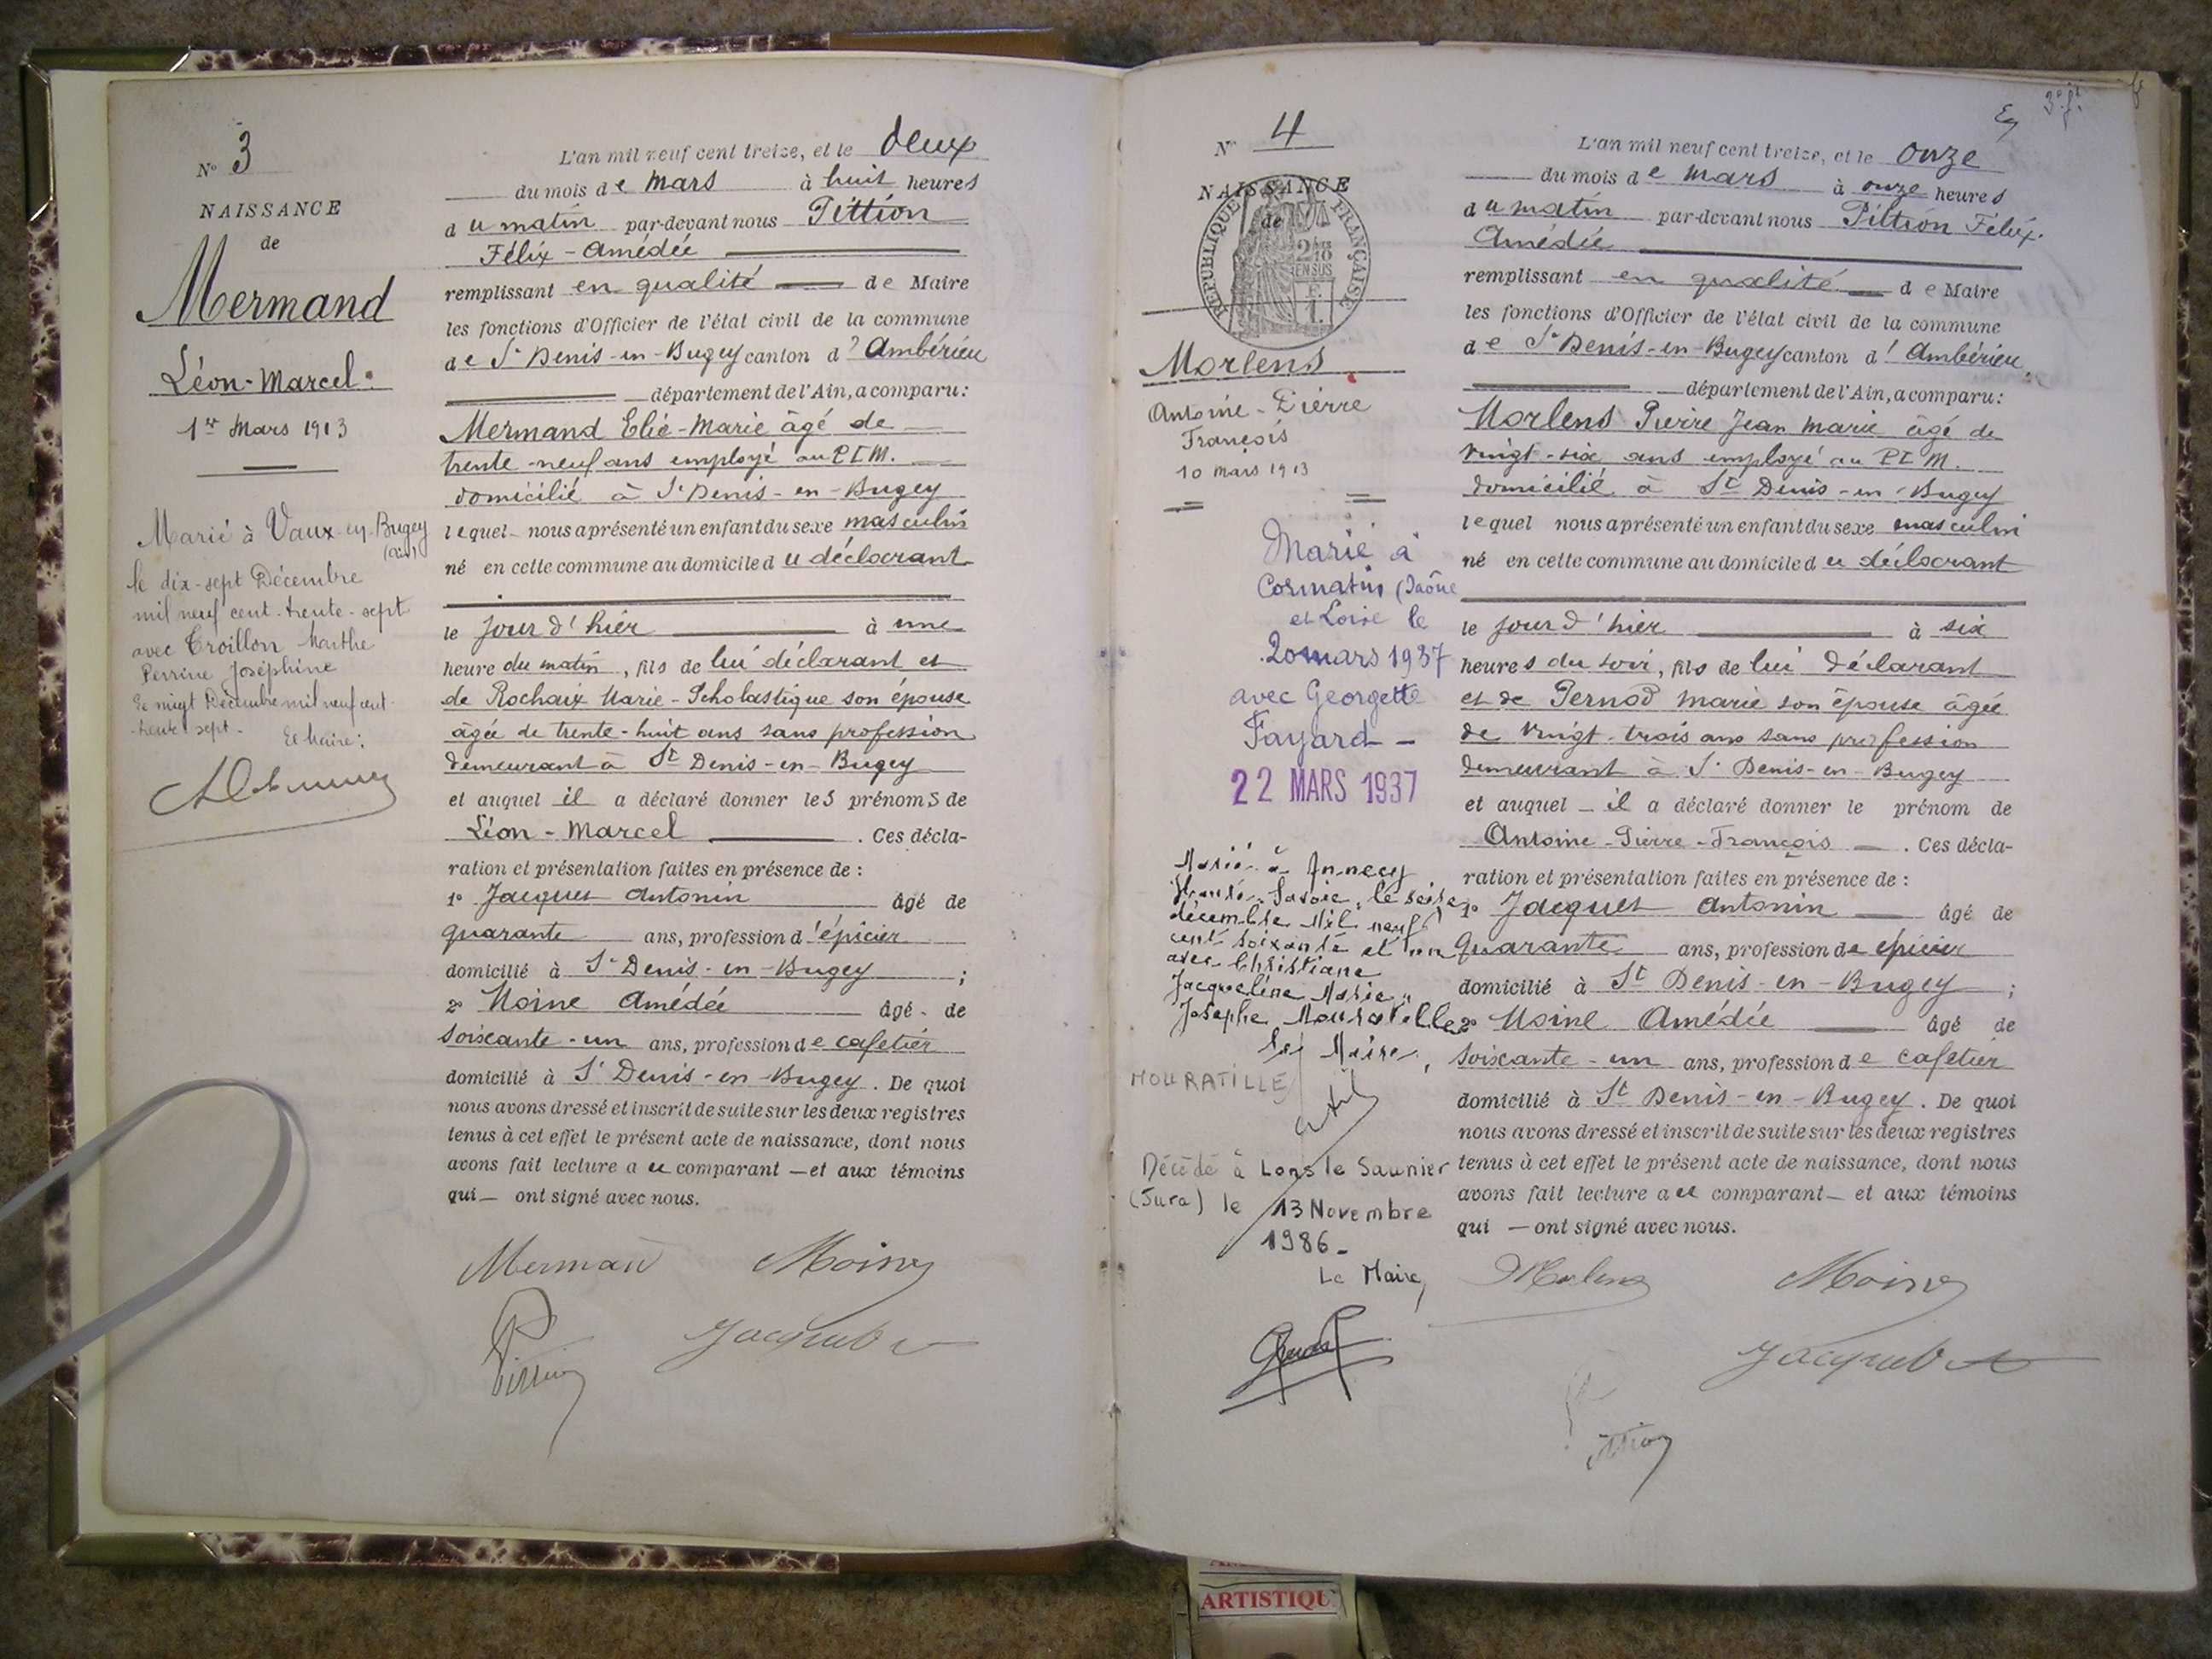 N° 3
NAISSANCE
de
Mermand
Léon-Marcel.
1er Mars 1913
Marié à Vaux-en-Bugey
(Ain)
le dix-sept Décembre
mil neuf cent-trente-sept
avec Troillon Marthe
Perrine Joséphine
Le vingt Décembre mil neuf cent-
-trente sept.
Le Maire:
L'an mil neuf cent treize, et le deux
du mois de mars à huit heures
du matin par-devant nous Pittion
Félix-Amédée
remplissant en qualité de Maire
les fonctions d'Officier de l'état civil de la commune
de St Denis-en-Bugey canton d'Ambérieu
département de l'Ain, a comparu:
Mermand Elie-Marie âgé de
trente-neuf ans employé au P L M.
domicilié à St Denis-en-Bugey
lequel nous a présenté un enfant du sexe masculin
né en cette commune au domicile du déclarant
le jour d'hier à une
heure du matin, fils de lui déclarant et
de Rochaix Marie-Scholastique son épouse
âgée de trente-huit ans sans profession
demeurant à St Denis-en-Bugey
et auquel il a déclaré donner les prénoms de
Léon-Marcel . Ces décla-
ration et présentation faites en présence de :
1° Jacquet Antonin âgé de
quarante ans, profession d'épicier
domicilié à St Denis-en-Bugey ;
2° Moine Amédée âgé de
soixante-un ans, profession de cafetier
domicilié à St Denis-en-Bugey. De quoi
nous avons dressé et inscrit de suite sur les deux registres
tenus à cet effet le présent acte de naissance, dont nous
avons fait lecture au comparant — et aux témoins
qui — ont signé avec nous.
Mermand Moine
Pittion Jacquet
N° 4
NAISSANCE
de
REPUBLIQUE FRANÇAISE
2/10
EN SUS
Morlens
Antoine-Pierre
François
10 mars 1913
Marié à
Cormatin (Saône
et Loire le
20 mars 1937
avec Georgette
Fayard -
22 MARS 1937
Marié à Annecy
Haute-Savoie, le seize
décembre Mil neuf
cent soixante et un
avec Christiane
Jacqueline Marie
Josephe Mouratille
Le Maire,
MOURATILLE
Décédé à Lons le Saunier
(Jura) le 13 Novembre
1986-
Le Maire,
L'an mil neuf cent treize, et le onze
du mois de mars à onze heures
du matin par-devant nous Pittion Félix
Amédée
remplissant en qualité de Maire
les fonctions d'Officier de l'état civil de la commune
de St Denis-en-Bugey canton d'Ambérieu
département de l'Ain, a comparu:
Morlens Pierre Jean Marie âgé de
vingt-six ans employé au P L M.
domicilié à St Denis-en-Bugey
lequel nous a présenté un enfant du sexe masculin
né en cette commune au domicile du déclarant
le jour d'hier à six
heures du soir, fils de lui déclarant
et de Pernod Marie son épouse âgée
de vingt-trois ans sans profession
demeurant à St Denis-en-Bugey
et auquel — il a déclaré donner le prénom de
Antoine-Pierre-François . Ces décla-
ration et présentation faites en présence de :
1° Jacquet Antonin âgé de
quarante ans, profession de épicier
domicilié à St Denis-en-Bugey ;
2° Moine Amédée âgé de
soixante-un ans, profession de cafetier
domicilié à St Denis-en-Bugey. De quoi
nous avons dressé et inscrit de suite sur les deux registres
tenus à cet effet le présent acte de naissance, dont nous
avons fait lecture au comparant — et aux témoins
qui — ont signé avec nous.
Morlens Moine
Jacquet
Pittion
ARTISTIQU